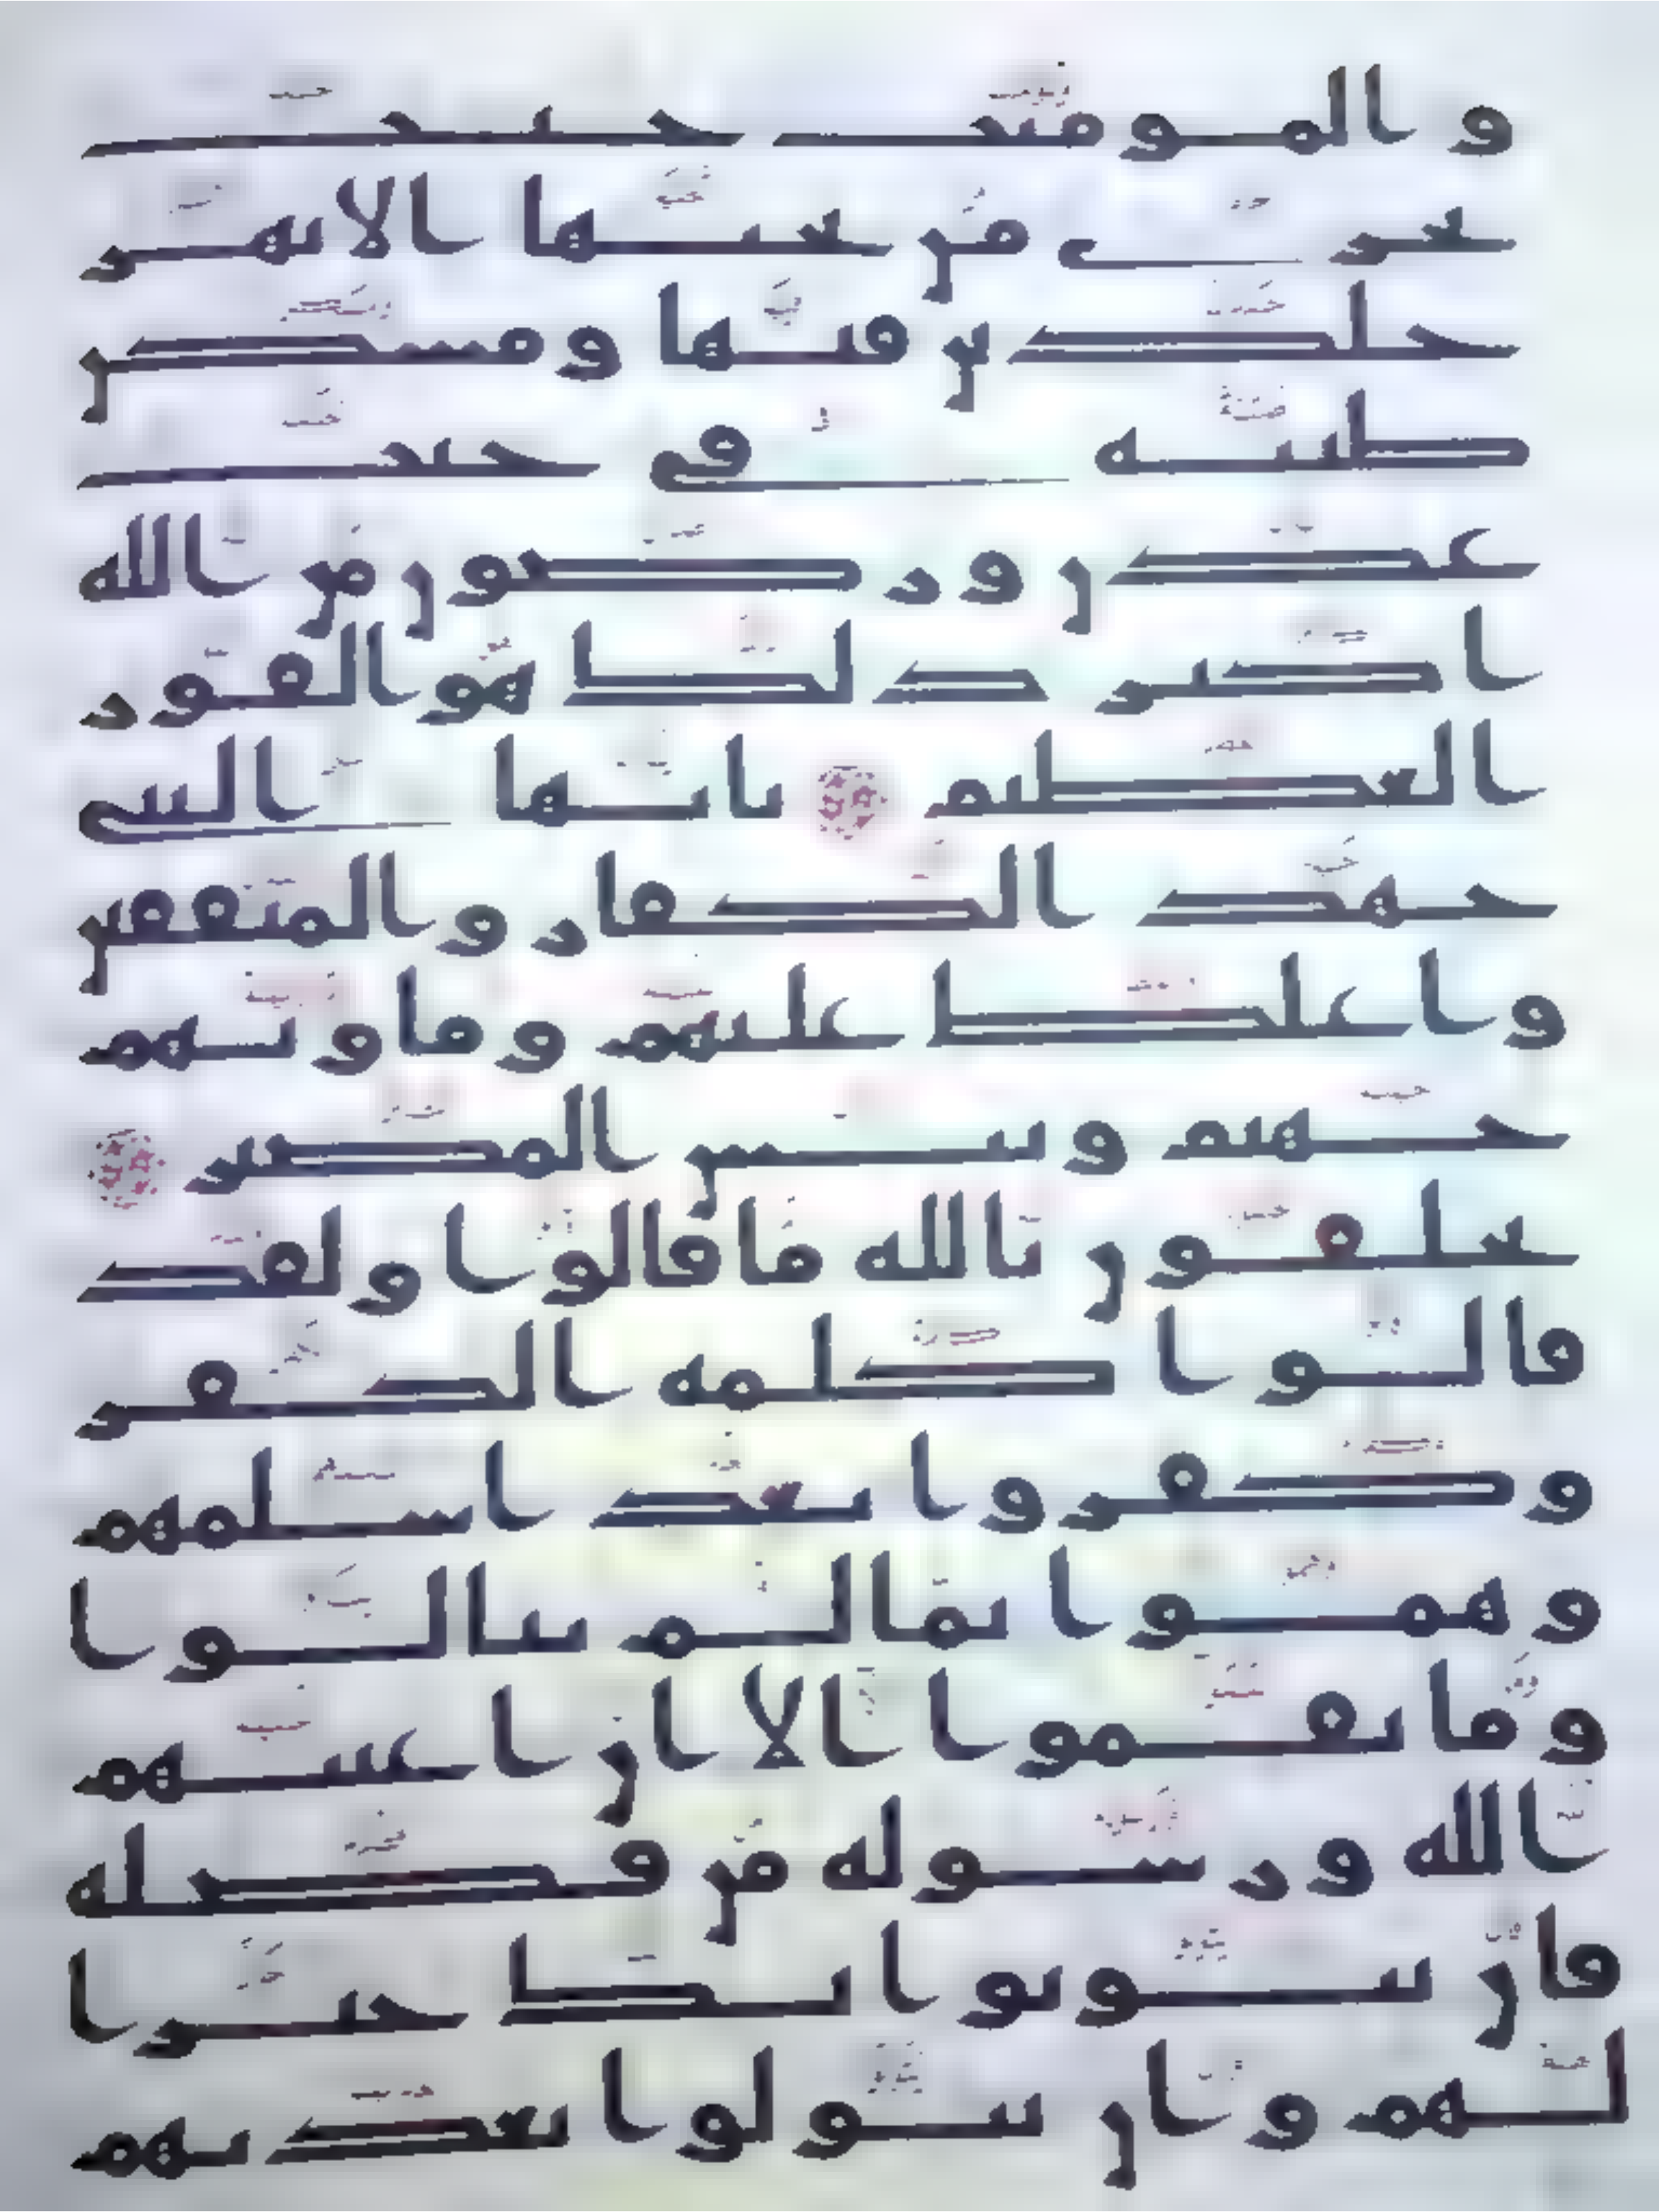 والمومنت جنت
تجري من تحتها الانهر
خلدين فيها ومسكن
طيبة في جنت
عدن ورضون من الله
اكبر ذلك هو الفوز
العظيم يايها النبي
جهد الكفار والمنفقين
واغلظ عليهم وماويهم
جهنم وبيس المصير
يحلفون بالله ما قالوا ولقد
قالوا كلمة الكفر
وكفروا بعد اسلمهم
وهموا بما لم ينالوا
وما نقموا الا ان اغنيهم
الله ورسوله من فضله
فان يتوبوا يك خيرا
لهم وان يتولوا يعذبهم